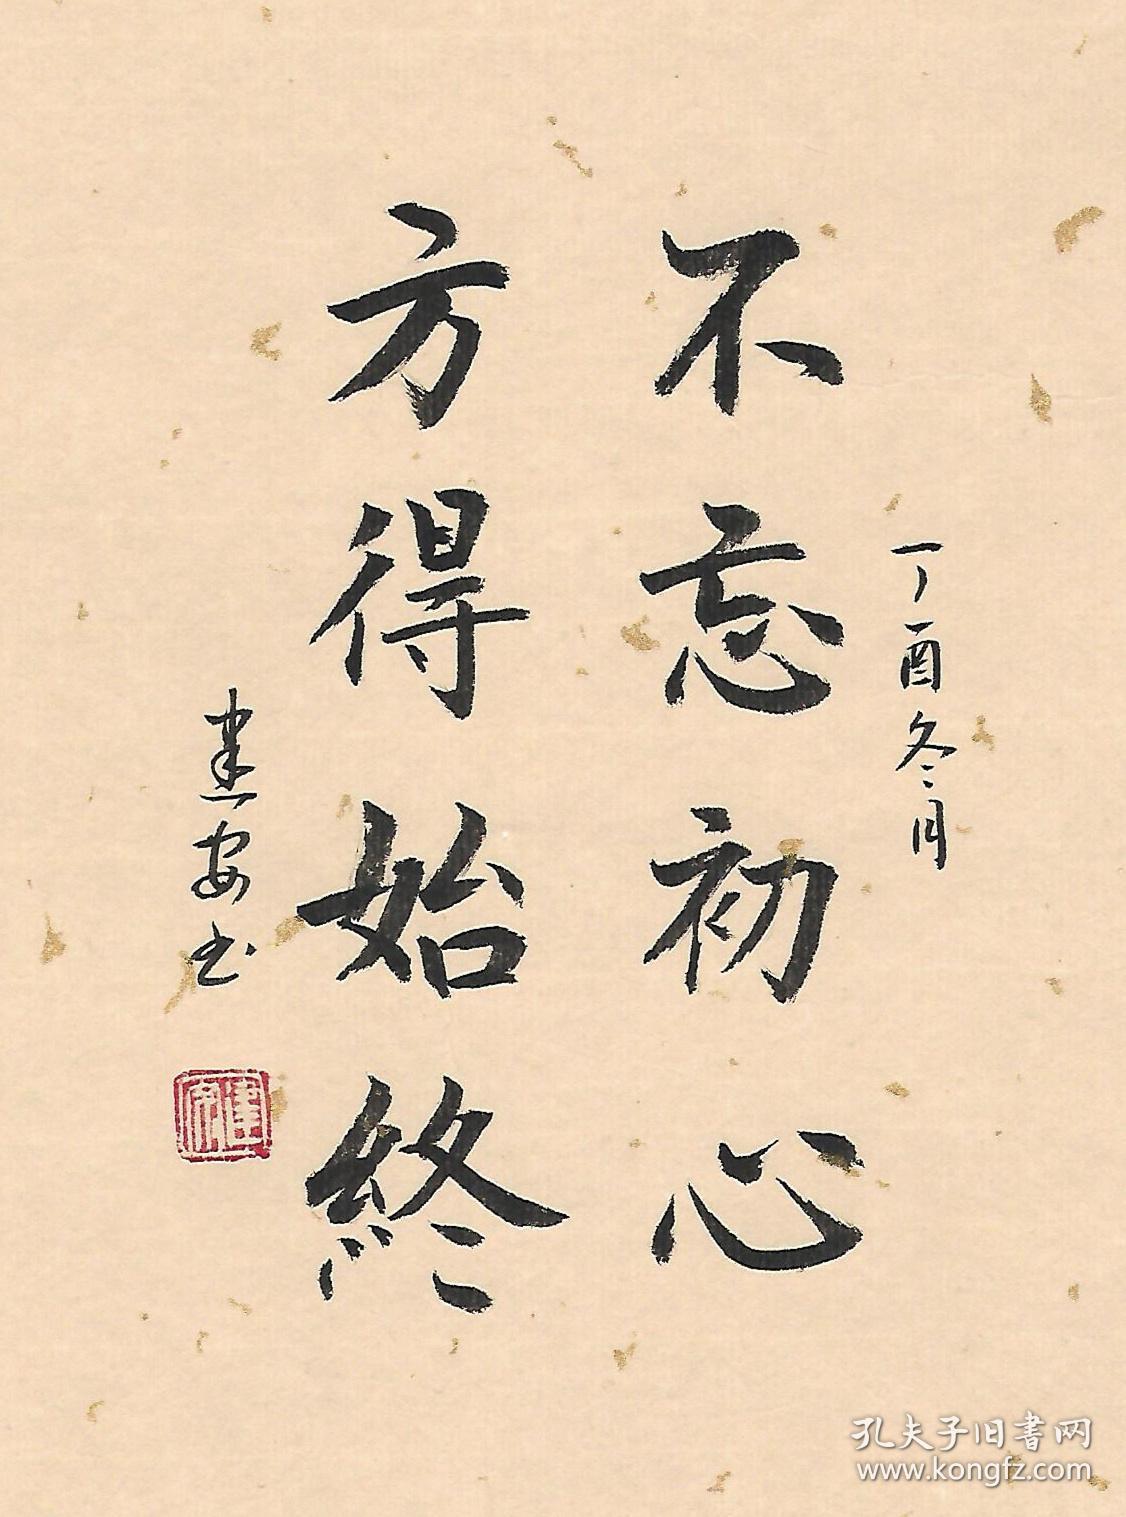 丁酉冬月
不忘初心
方得始終
建安书
建安
孔夫子旧書网
www.kongfz.com